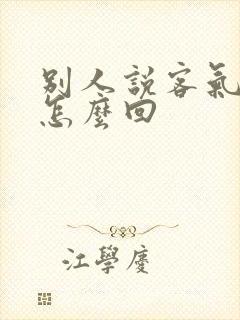 別人說客氣
怎麼回
江學慶